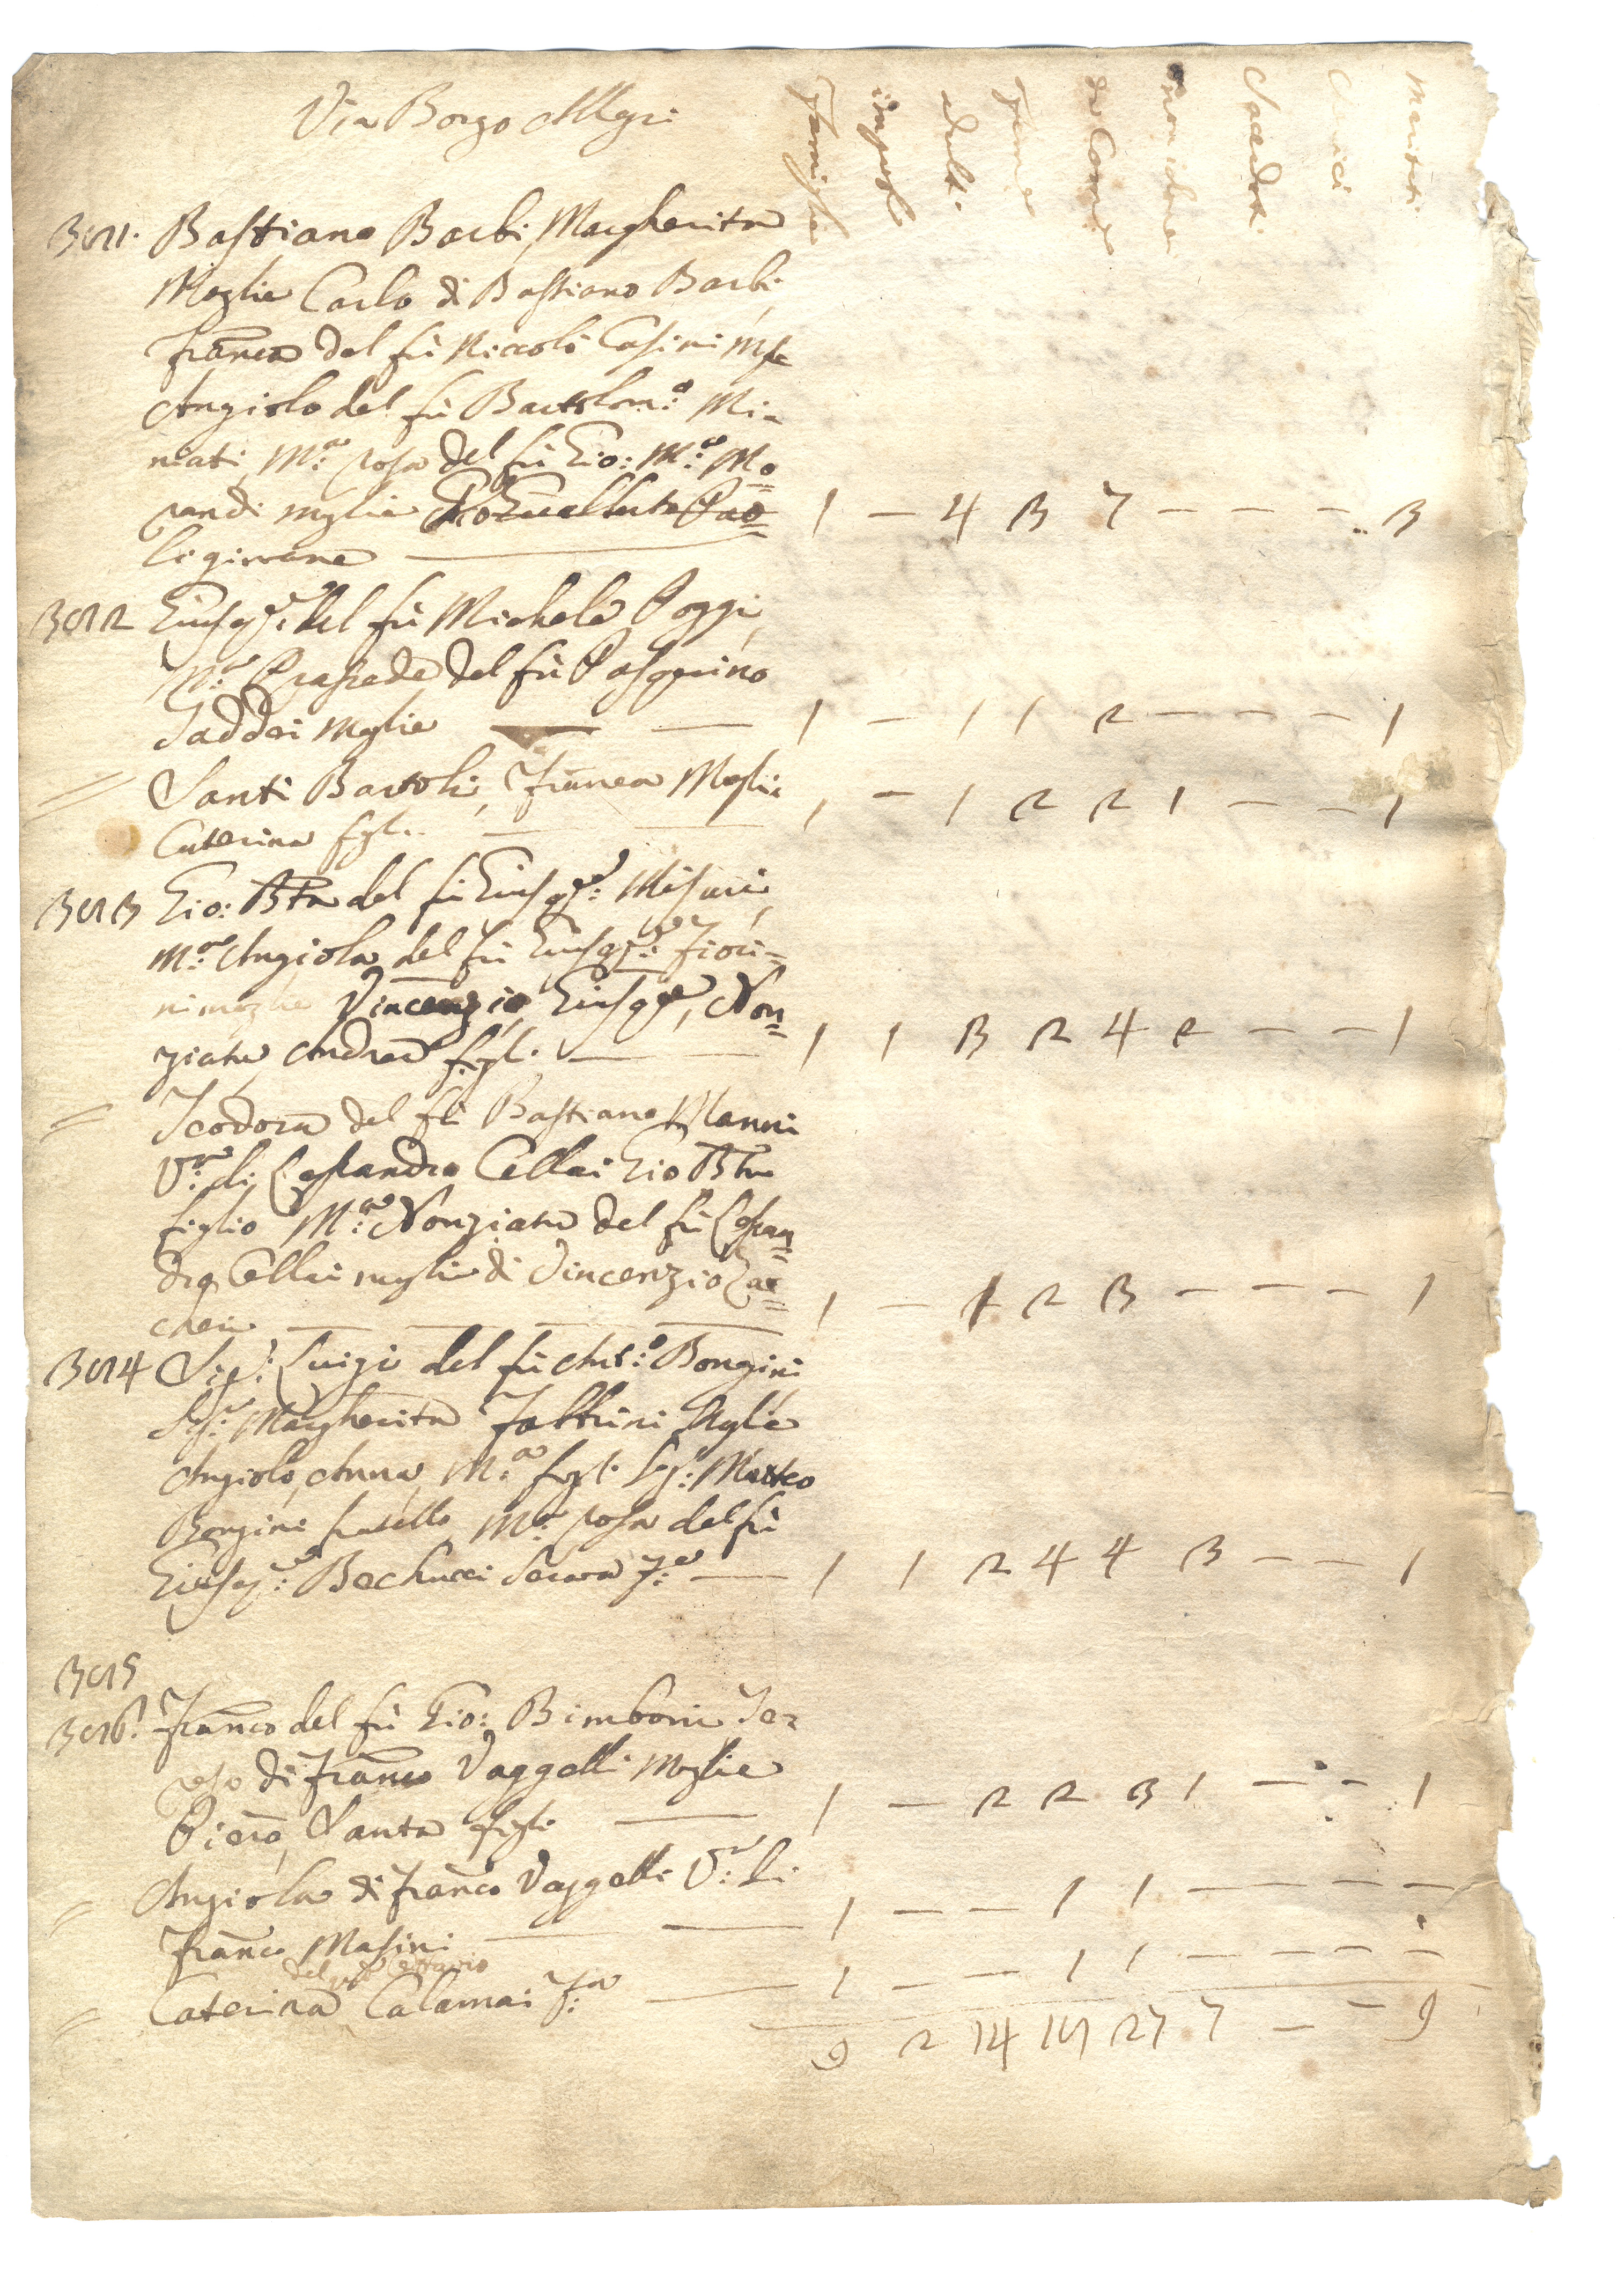 Via Borgo Allegri
Famiglie impuberi adulti femine da Comne non idonei Sacerdoti Chierici mariti
3011. Bastiano Barbi, Margherita
Moglie Carlo di Bastiano Barbi
Franca del fù Niccolò Casini Mgle
Angiolo del fù Bartolom:o Mi=
niati, M:a rosa del fù Gio: M:a Mo=
randi moglie
ligiovane 1 – 4 3 7 – – – – 3
3012 Giusep:e del fù Michele Poggi,
M:a Prassede del fù Pasquino
Taddei Moglie 1 – 1 1 2 – – – 1
= Santi Bartoli, Franca Moglie
Caterina figl. 1 – 1 2 2 1 – – 1
3013 Gio: Bta del fù Giusep:e Misuri,
M:a Angiola del fù Giusep:e Fiori=
ni moglie Vincenzio, Giusepe, Non=
ziata, Andrea figli 1 1 3 2 4 2 – – – 1
= Teodora del fù Bastiano Nanni
V:a di Lessandro Cellai Gio Bta
figlio M:a Nonziata del fù Lessan=
dro Cellai moglie di Vincenzio Zac=
cheri 1 – 1 2 3 – – – 1
3014 Sig: Luigi del fù Ant:o Bongini
Sig:a Margherita Fabbrini Moglie
Angiolo, Anna, M:a figli Sig: Matteo
Bongini fratello, M:a rosa del fù
Giusep:e Bechucci Serva F:a 1 1 2 4 4 3 – – 1
3015
3016. Franco del fù Gio: Bimboni Te=
resa di Franco Vaggelli Moglie
Piero, Santa figli 1 – 2 2 3 1 – – 1
= Angiola di Franco Vaggelli V:a di
Franco Masini 1 – – 1 1 – – – –
del fù
= Caterina Calamai F:a 1 – – 1 1 – – – –
9 2 14 19 27 7 – – 9